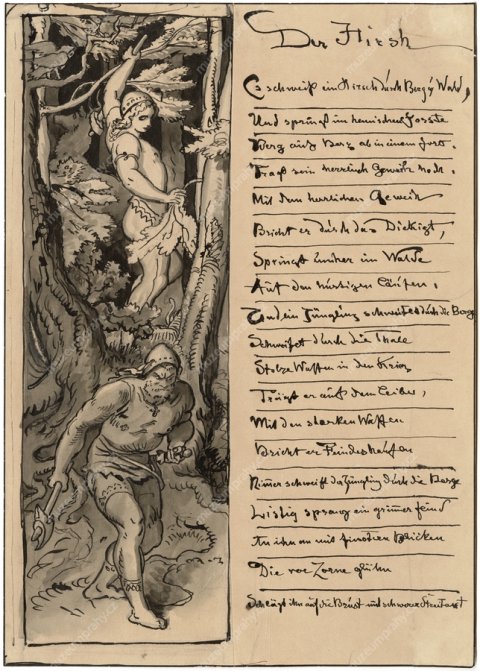 Der Hirsh
Es schweift ein Hirsch durch Berg u Wald,
Und springt im
Berg auf Berg ab in einem fort.
Trägt sein herrlich Geweih hoch.
Mit dem herrlichen Geweih
Bricht er durch das Dickigt,
Springt umher im Walde
Auf den hurtigen Läufen,
Und ein Jüngling schweifet durch die Berge
Schweifet durch die Thale
Stolze Waffen in den Krieg
Trägt er auf dem Leibe,
Mit den starken Waffen
Bricht er Feindeshaufen
Nimer schweift da Jüngling durch die Berge
Listig sprang ein grimer Feind
An ihn an mit finstren Blicken
Die vor Zorne glühn
Schlägt ihn auf die Brust mit schwerer Streitaxt